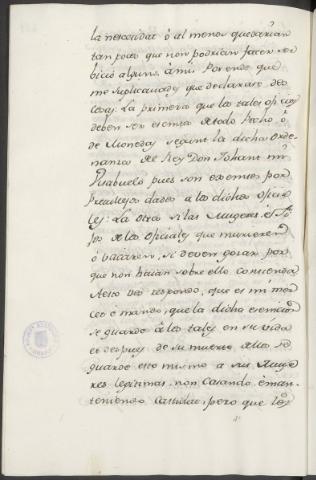 la necesidat ó al menos quedarian
tan pocos que non podrian facer ser
bicio alguno à mi. Por ende que
me suplicavades que declarase dos
cosas: La primera que los tales oficiales
deben ser esemtos de todo Pecho, ó
de Monedas segunt la dicha Orde
nanza del Rey Don Johant mi
Visabuelo pues son exsemtos por
Previlejos dados à los dichos oficia
les: La otra si las Mugeres, è fi
jos de los oficiales que murieren
ò vacaren, si deven gozar por
que non haian sobre ello contienda
A esto vos respondo, que es mi mer
cet è mando, que la dicha esencion
se guarde à los tales en su vida
et despues de su muerte dellos se
guarde esto mismo a sus Muge
res lexitimas, non Casando, è man
teniendo Castidat, pero que los